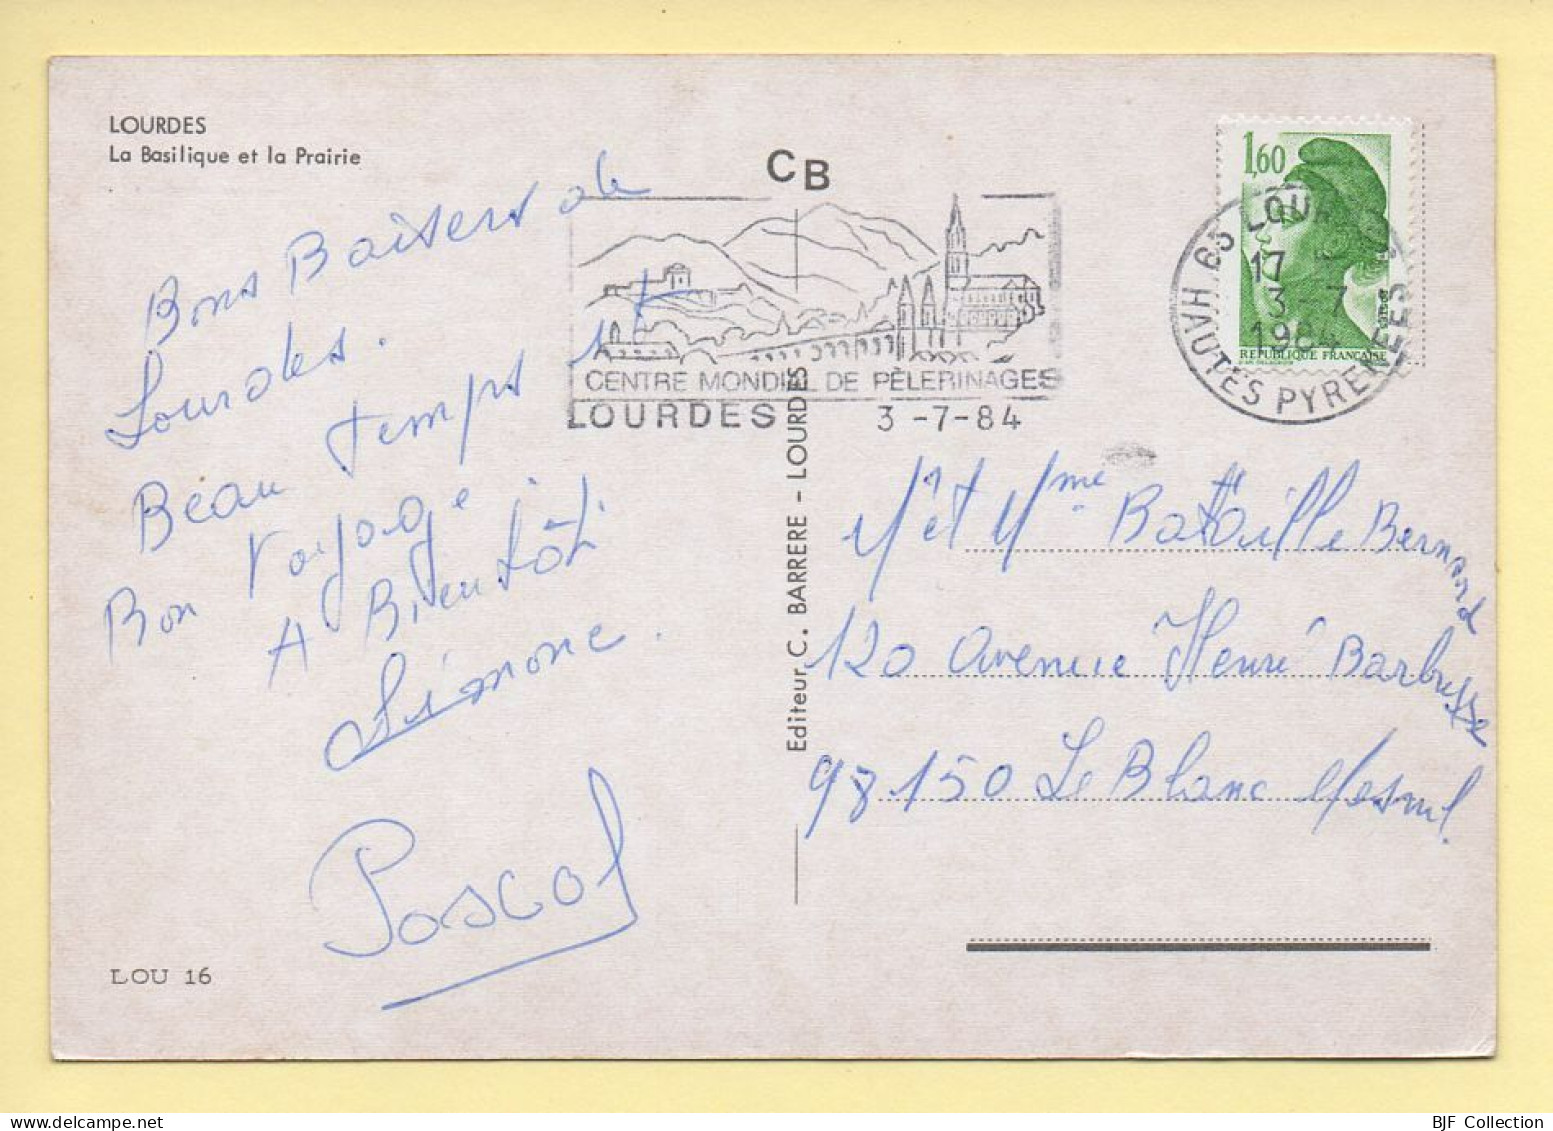 LOURDES
La Basilique et la Prairie
Bons Baisers de
Lourdes.
Beau temps et
Bon Voyage
A Bientôt
Simone.
Pascal
LOU 16
CB
CENTRE MONDIAL DE PÈLERINAGES
LOURDES 3-7-84
Editeur C. BARRERE - LOURDES
1,60
REPUBLIQUE FRANCAISE
65 LOUR
17
3-7
1984
HAUTES PYRENEES
M et Mme Bataille Bernard
120 Avenue Henri Barbusse
93150 Le Blanc Mesnil.
BJF Collection